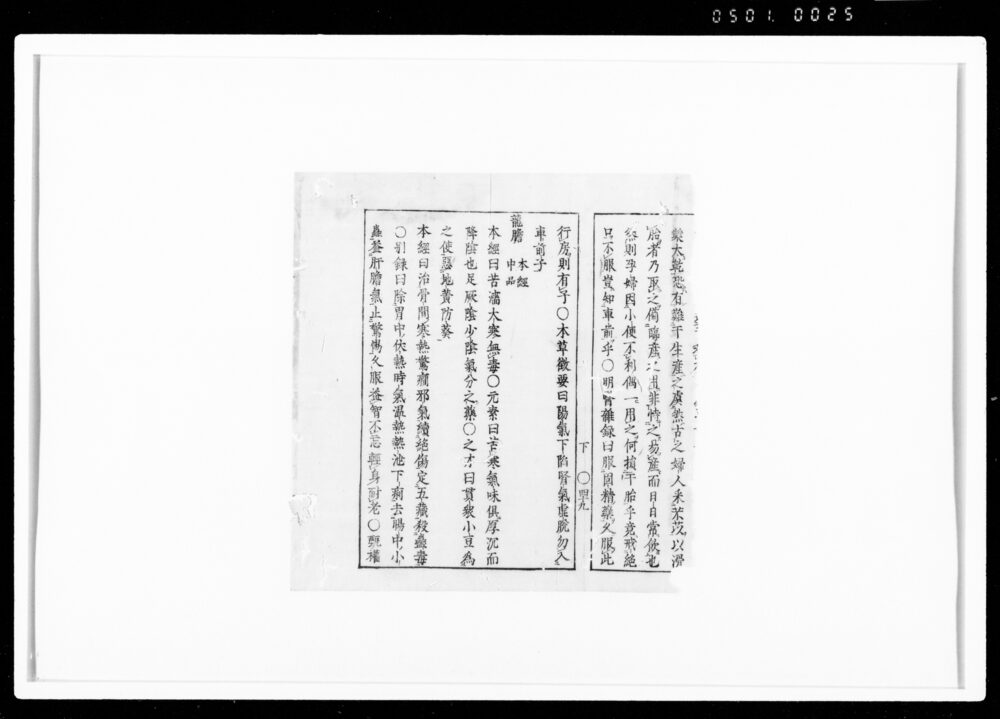 0501. 0025
藥太乾恐有難于生產之虞然古之婦人采芣苡以滑
胎者乃取之備臨產之用非憚之易產而日日常飲也
然則孕婦因小便不利偶一用之何損于胎乎竟戒絕
只不服豈知車前乎〇明醫雜錄曰服固精藥久服此
下 〇四九
行房則有子〇本草徵要曰陽氣下陷腎氣虛脫勿入
車前子
龍膽 本經中品
本經曰苦濇大寒無毒〇元素曰苦寒氣味俱厚沉而
降陰也足厥陰少陰氣分之藥〇之才曰貫衆小豆為
之使惡地黃防葵
本經曰治骨間寒熱驚癇邪氣續絕傷定五藏殺蠱毒
〇別錄曰除胃中伏熱時氣溫熱熱泄下痢去腸中小
蟲益肝膽氣止驚惕久服益智不忘輕身耐老〇甄權